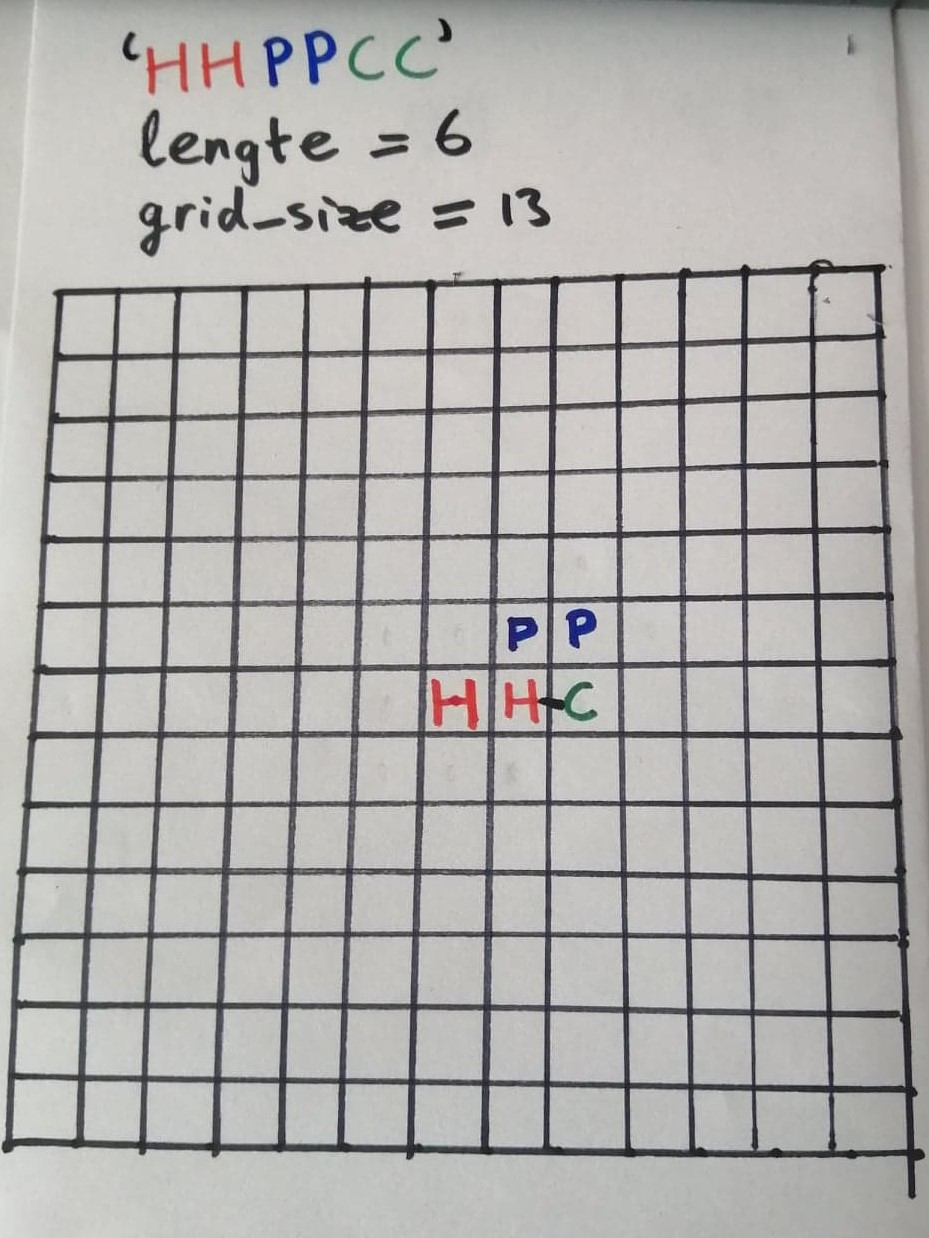 'HHPPCC'
lengte = 6
grid_size = 13
P P
H H-C